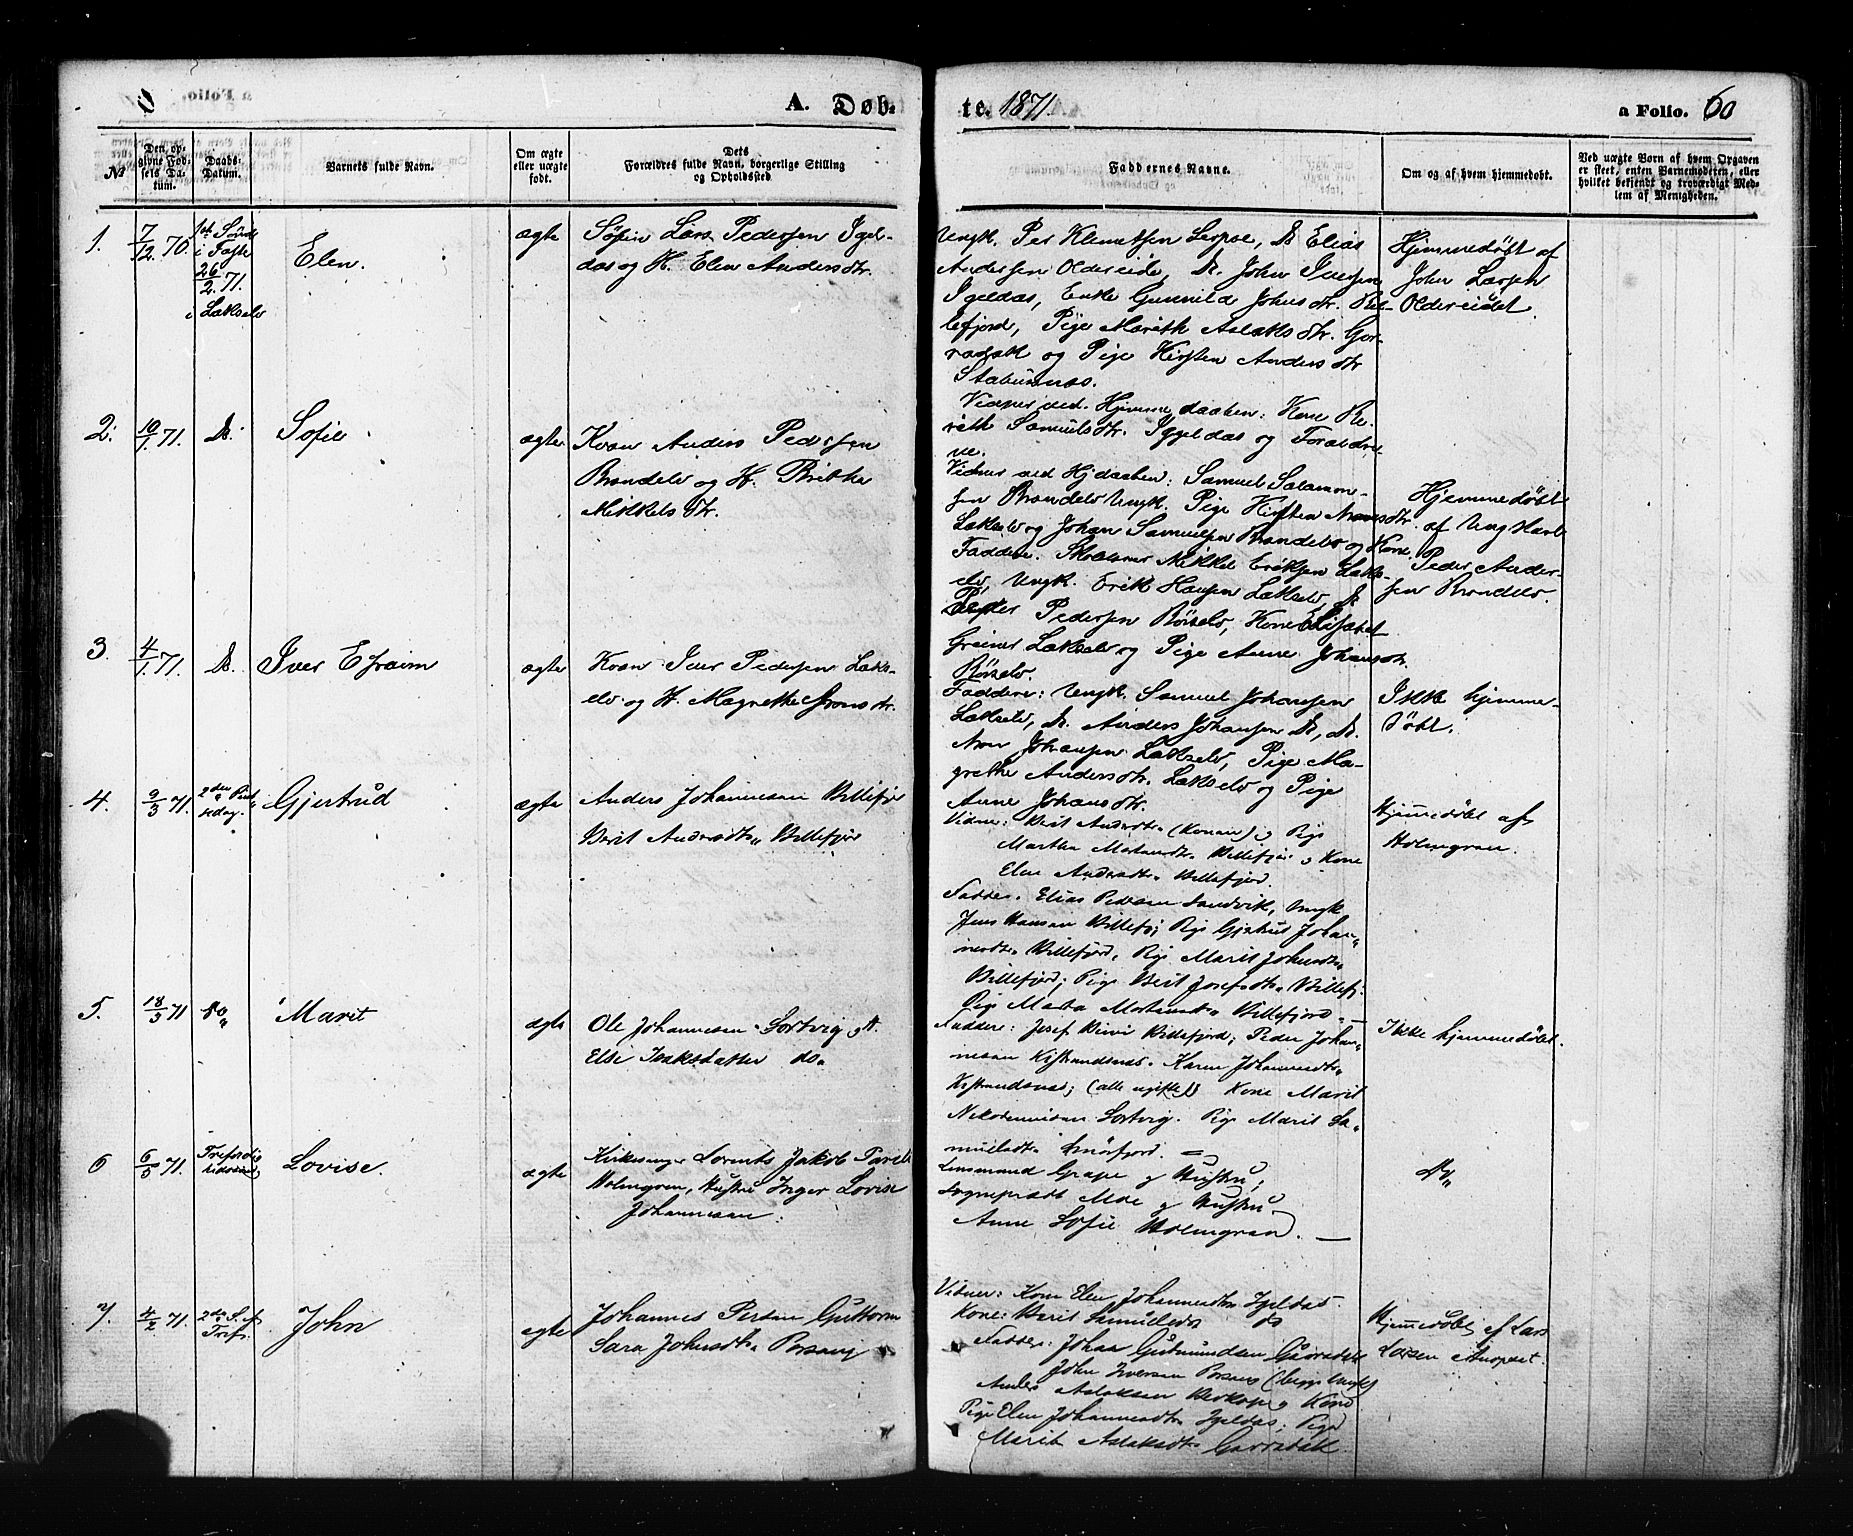 A. Døb-
te. 1871.
a Folio. 60
№
Den op-
givne Fød-
sels Da-
tum.
Daabs-
Datum.
Barnets fulde Navn.
Om ægte
eller uægte
født.
Dets
Forældres fulde Navn, borgerlige Stilling
og Opholdssted
Faddernes Navne.
Om og af hvem hjemmedøbt.
Ved uægte Børn af hvem Opgaven
er skeet, enten Barnemoderen, eller
hvilket bekjendt og troværdigt Med-
lem af Menigheden.
1.
7/12. 70.
1ste Sønd
i Faste
26/2. 71.
i Lakselv
Elen.
ægte
Søfin Lars Pedersen Igel-
das og H. Elen Andersdtr.
Ungk. Per Klemetsen Leipoe, D. Elias
Andersen Oldereide, D. John Iversen
Igeldas, Enke Gunnild Johnsdtr. Bil-
lefjord, Pige Marith Aslaksdtr. Gar-
radak og Pige Kirsten Andersdtr
Stabursnæs.
Vidner ved Hjemmedaaben: Kone Be-
rith Samuelsdtr. Iggeldas og Forældre-
ne.
Hjemmedøbt af
John Larsen
Oldereidet.
2.
10/1. 71.
D.
Sofie
ægte
Kvæn Anders Pedersen
Brandelv og H. Britha
Mikkelsdtr.
Vidner ved Hjdaaben: Samuel Salamon-
sen Brandelv Ungk. Pige Kirsten Aronsdtr.
Lakselv og Johan Samuelsen Brandelv og Kone.
Faddere. Mikkel Eriksen Laks-
elv, Ungk. Erik Hansen Lakselv, D.
Peder Pedersen Børselv, Kone Elisabet
Greiner Lakselv og Pige Anne Johansdtr.
Børselv.
Hjemmedøbt
af Ungkarl
Peder Ander-
sen Brandelv.
3.
4/1. 71.
D.
Iver Efraim
ægte
Kvæn Iver Pedersen Laks-
elv og H. Magrethe Aronsdtr.
Faddere: Ungk. Samuel Johansen
Lakselv, D. Anders Johansen D., D.
Aron Johansen Lakselv, Pige Ma-
grethe Andersdtr. Lakselv og Pige
Anne Johansdtr.
Ikke hjemme-
døbt.
4.
9/3 71.
2den Pint-
sedag.
Gjertrud
ægte
Anders Johannesen Billefjor
Berit Andersdtr. Billefjor
Vidner: Berit Andersdtr. (Konen) og Pige
Martha Mortensdtr. Billefjor og Kone
Elen Andersdtr. Billefjord.
Fadder. Elias Persen Sandvik, Ungk
Jens Hansen Billefj; Pige Gjertrud Johan-
nesdtr. Billefjord, Pige Marit Johnsdtr.
Billefjord; Pige Berit Josefsdtr. Billefj.
Pige Marta Mortensdtr. Billefjord.
Hjemmedøbt af
Holmgren.
5.
18/3 71
do
Marit
ægte
Ole Johannesen Sortvig og H.
Else Isaksdatter do.
Fadder: Josef Billefjord; Peder Johan-
nesen Kistrandsnæs. Karen Johannesdtr.
Kistrandsnæs; (alle ugifte) Kone Marit
Nikodemusen Sortvig. Pige Marit Sa-
muelsdtr. Smørfjord.
Ikke hjemmedøbt.
6
6/5 71.
Lovise.
ægte
Kirkesanger Lorents Jakob Pareli
Holmgren, Hustru Inger Lovise
Johannesen.
Lensmand Grape og Hustru;
Sogneprædt Moe og Hustru
Anne Sofie Holmgren.
do
7.
4/2 71.
2de S. ef
Tref.
John
ægte
Johannes Persen Guttorm
Sara Johnsdtr. Porsang
Vidner: Kone Elen Johannesdtr. Igeldas.
Kone: Berit Samuelsdtr do
Fadder: Johan Gudmundsen Garradak
John Iversen Porsang (begge Ungk)
Anders Aslaksen og Kone
Pige Elen Johannesdtr Igeldas; Pige
Marit Aslaksdtr. Garradak.
Hjemmedøbt af Lars
Larsen